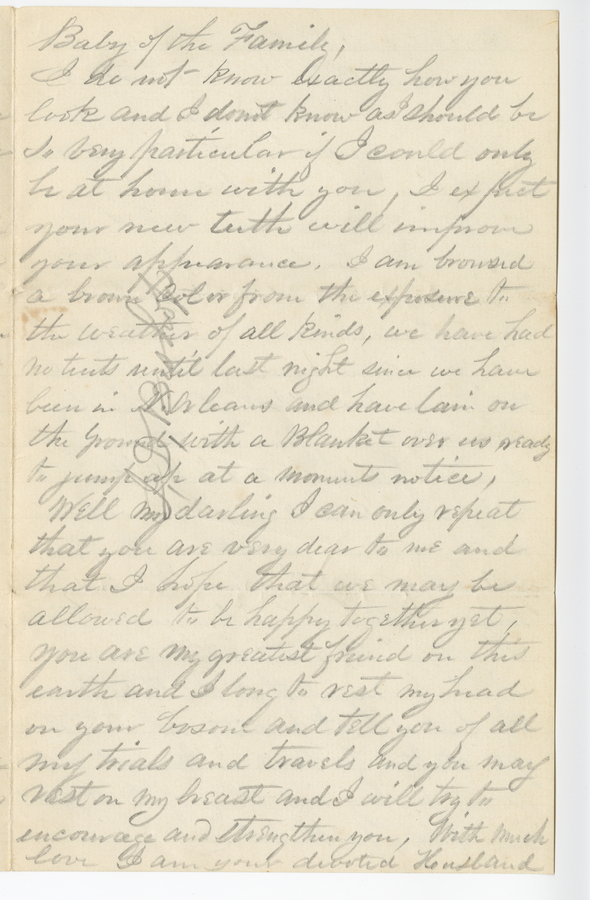 Baby of the Family,
I do not know exactly how you
look and I dont know as I should be
so very particular if I could only
be at home with you, I expect
your new teeth will improve
your appearance. I am bronzed
a brown color from the exposure to
the weather of all kinds, we have had
no tents until last night since we have
been in N. Orleans and have lain on
the ground with a Blanket over us ready
to jump up at a moments notice,
Well my darling I can only repeat
that you are very dear to me and
that I hope that we may be
allowed to be happy together yet,
you are my greatest friend on this
earth and I long to rest my head
on your bosom and tell you of all
my trials and travels and you may
rest on my breast and I will try to
encourage and strengthen you, With much
love I am your devoted Husband